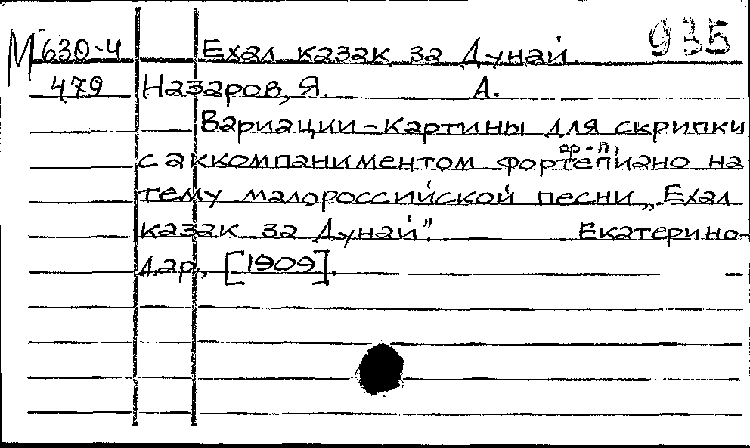 М 630-4 Ехал казак за Дунай. 935
479 Назаров, Я. А.
Вариации-картины для скрипки
ор-п.
с аккомпаниментом фортепиано на
тему малороссийской песни „Ехал
казак за Дунай". Екатерино-
дар, [1909].